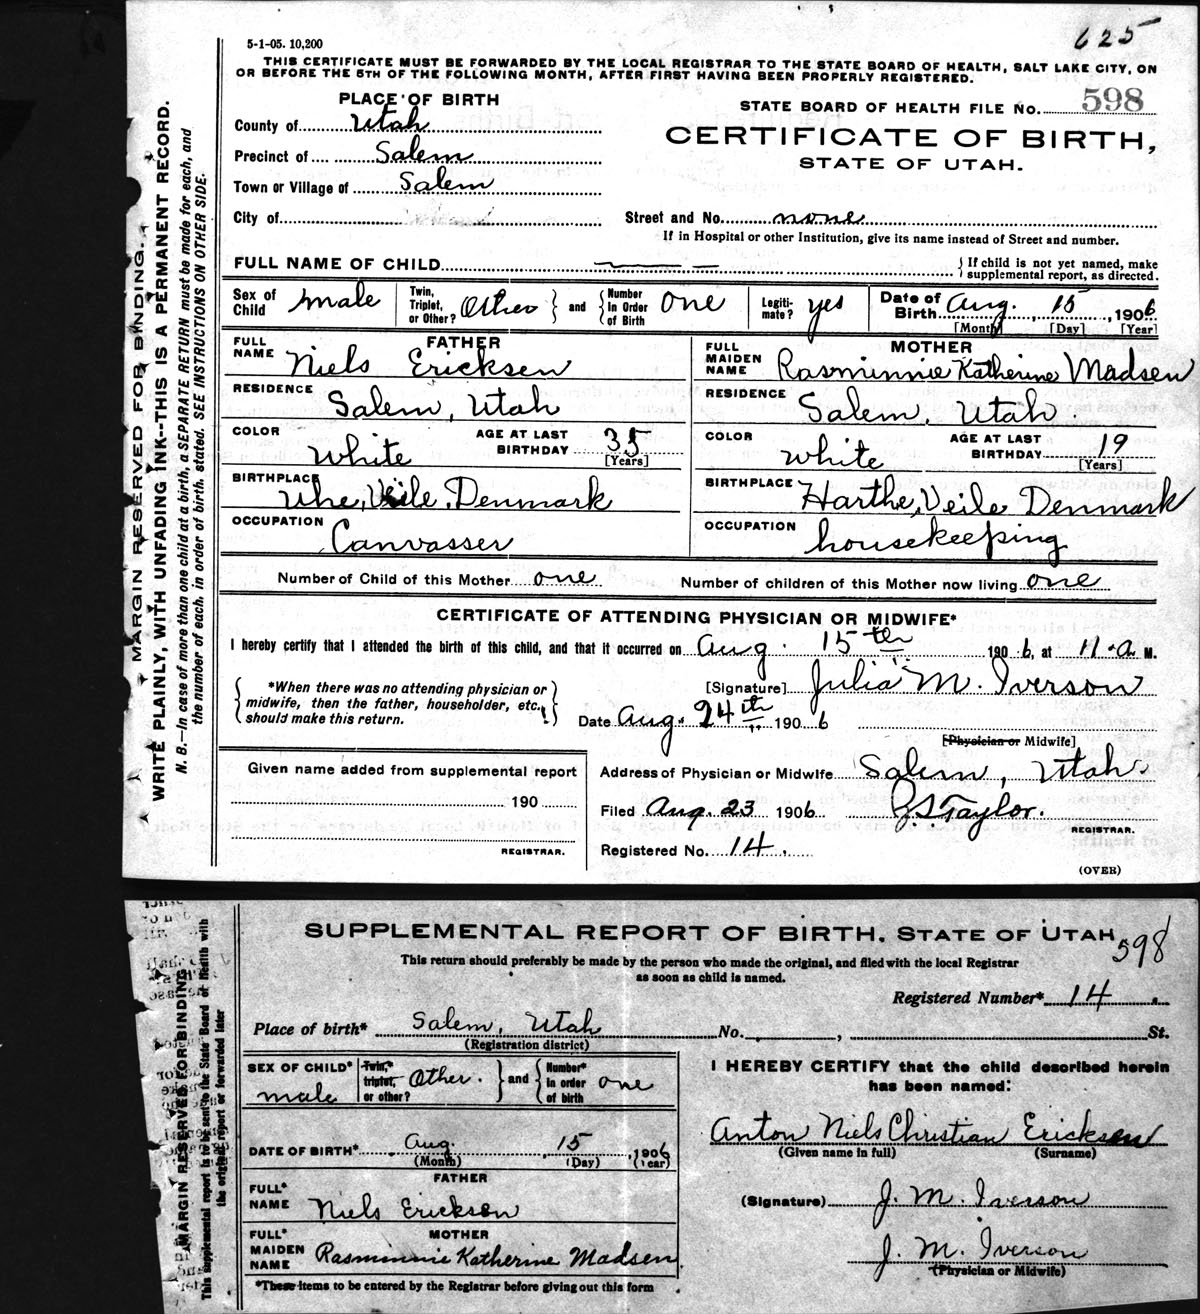 625
5-1-05. 10,200
THIS CERTIFICATE MUST BE FORWARDED BY THE LOCAL REGISTRAR TO THE STATE BOARD OF HEALTH, SALT LAKE CITY, ON
OR BEFORE THE 5TH OF THE FOLLOWING MONTH, AFTER FIRST HAVING BEEN PROPERLY REGISTERED.
PLACE OF BIRTH
STATE BOARD OF HEALTH FILE No. 598
County of Utah
CERTIFICATE OF BIRTH,
Precinct of Salem
STATE OF UTAH.
Town or Village of Salem
City of
Street and No. none
If in Hospital or other Institution, give its name instead of Street and number.
FULL NAME OF CHILD
If child is not yet named, make
supplemental report, as directed.
Sex of Child male Twin, Triplet, or Other? Other and Number in Order of Birth one Legitimate? yes Date of Birth Aug. 15, 1906
[Month] [Day] [Year]
FATHER
FULL NAME Niels Ericksen
RESIDENCE Salem, Utah
COLOR White AGE AT LAST BIRTHDAY 35 [Years]
BIRTHPLACE Uhe, Veile, Denmark
OCCUPATION Canvasser
MOTHER
FULL MAIDEN NAME Rasminnie Katherine Madsen
RESIDENCE Salem, Utah.
COLOR white AGE AT LAST BIRTHDAY 19 [Years]
BIRTHPLACE Harthe, Veile Denmark
OCCUPATION housekeeping
Number of Child of this Mother one Number of children of this Mother now living one
CERTIFICATE OF ATTENDING PHYSICIAN OR MIDWIFE*
I hereby certify that I attended the birth of this child, and that it occurred on Aug. 15th 1906, at 11 a M.
*When there was no attending physician or
midwife, then the father, householder, etc.,
should make this return.
[Signature] Julia M. Iverson
Date Aug. 24th 1906
[Physician or Midwife]
Given name added from supplemental report
190
REGISTRAR.
Address of Physician or Midwife Salem, Utah
Filed Aug. 23 1906 J. S. Taylor.
REGISTRAR.
Registered No. 14.
(OVER)
MARGIN RESERVED FOR BINDING.
WRITE PLAINLY, WITH UNFADING INK--THIS IS A PERMANENT RECORD.
N. B.—In case of more than one child at a birth, a SEPARATE RETURN must be made for each, and
the number of each, in order of birth, stated. SEE INSTRUCTIONS ON OTHER SIDE.
SUPPLEMENTAL REPORT OF BIRTH, STATE OF UTAH
598
This return should preferably be made by the person who made the original, and filed with the local Registrar
as soon as child is named.
Registered Number* 14
Place of birth* Salem, Utah No. , St.
(Registration district)
SEX OF CHILD* male Twin,* triplet, or other? Other. and Number* in order of birth one
DATE OF BIRTH* Aug. 15, 1906
(Month) (Day) (Year)
FATHER
FULL* NAME Niels Erickson
MOTHER
FULL* MAIDEN NAME Rasminnie Katherine Madsen
*These items to be entered by the Registrar before giving out this form
I HEREBY CERTIFY that the child described herein
has been named:
Anton Niels Christian Ericksen
(Given name in full) (Surname)
(Signature) J. M. Iverson
J. M. Iverson
(Physician or Midwife)
MARGIN RESERVED FOR BINDING
This supplemental report is to be sent to the State Board of Health with
the original report or forwarded later